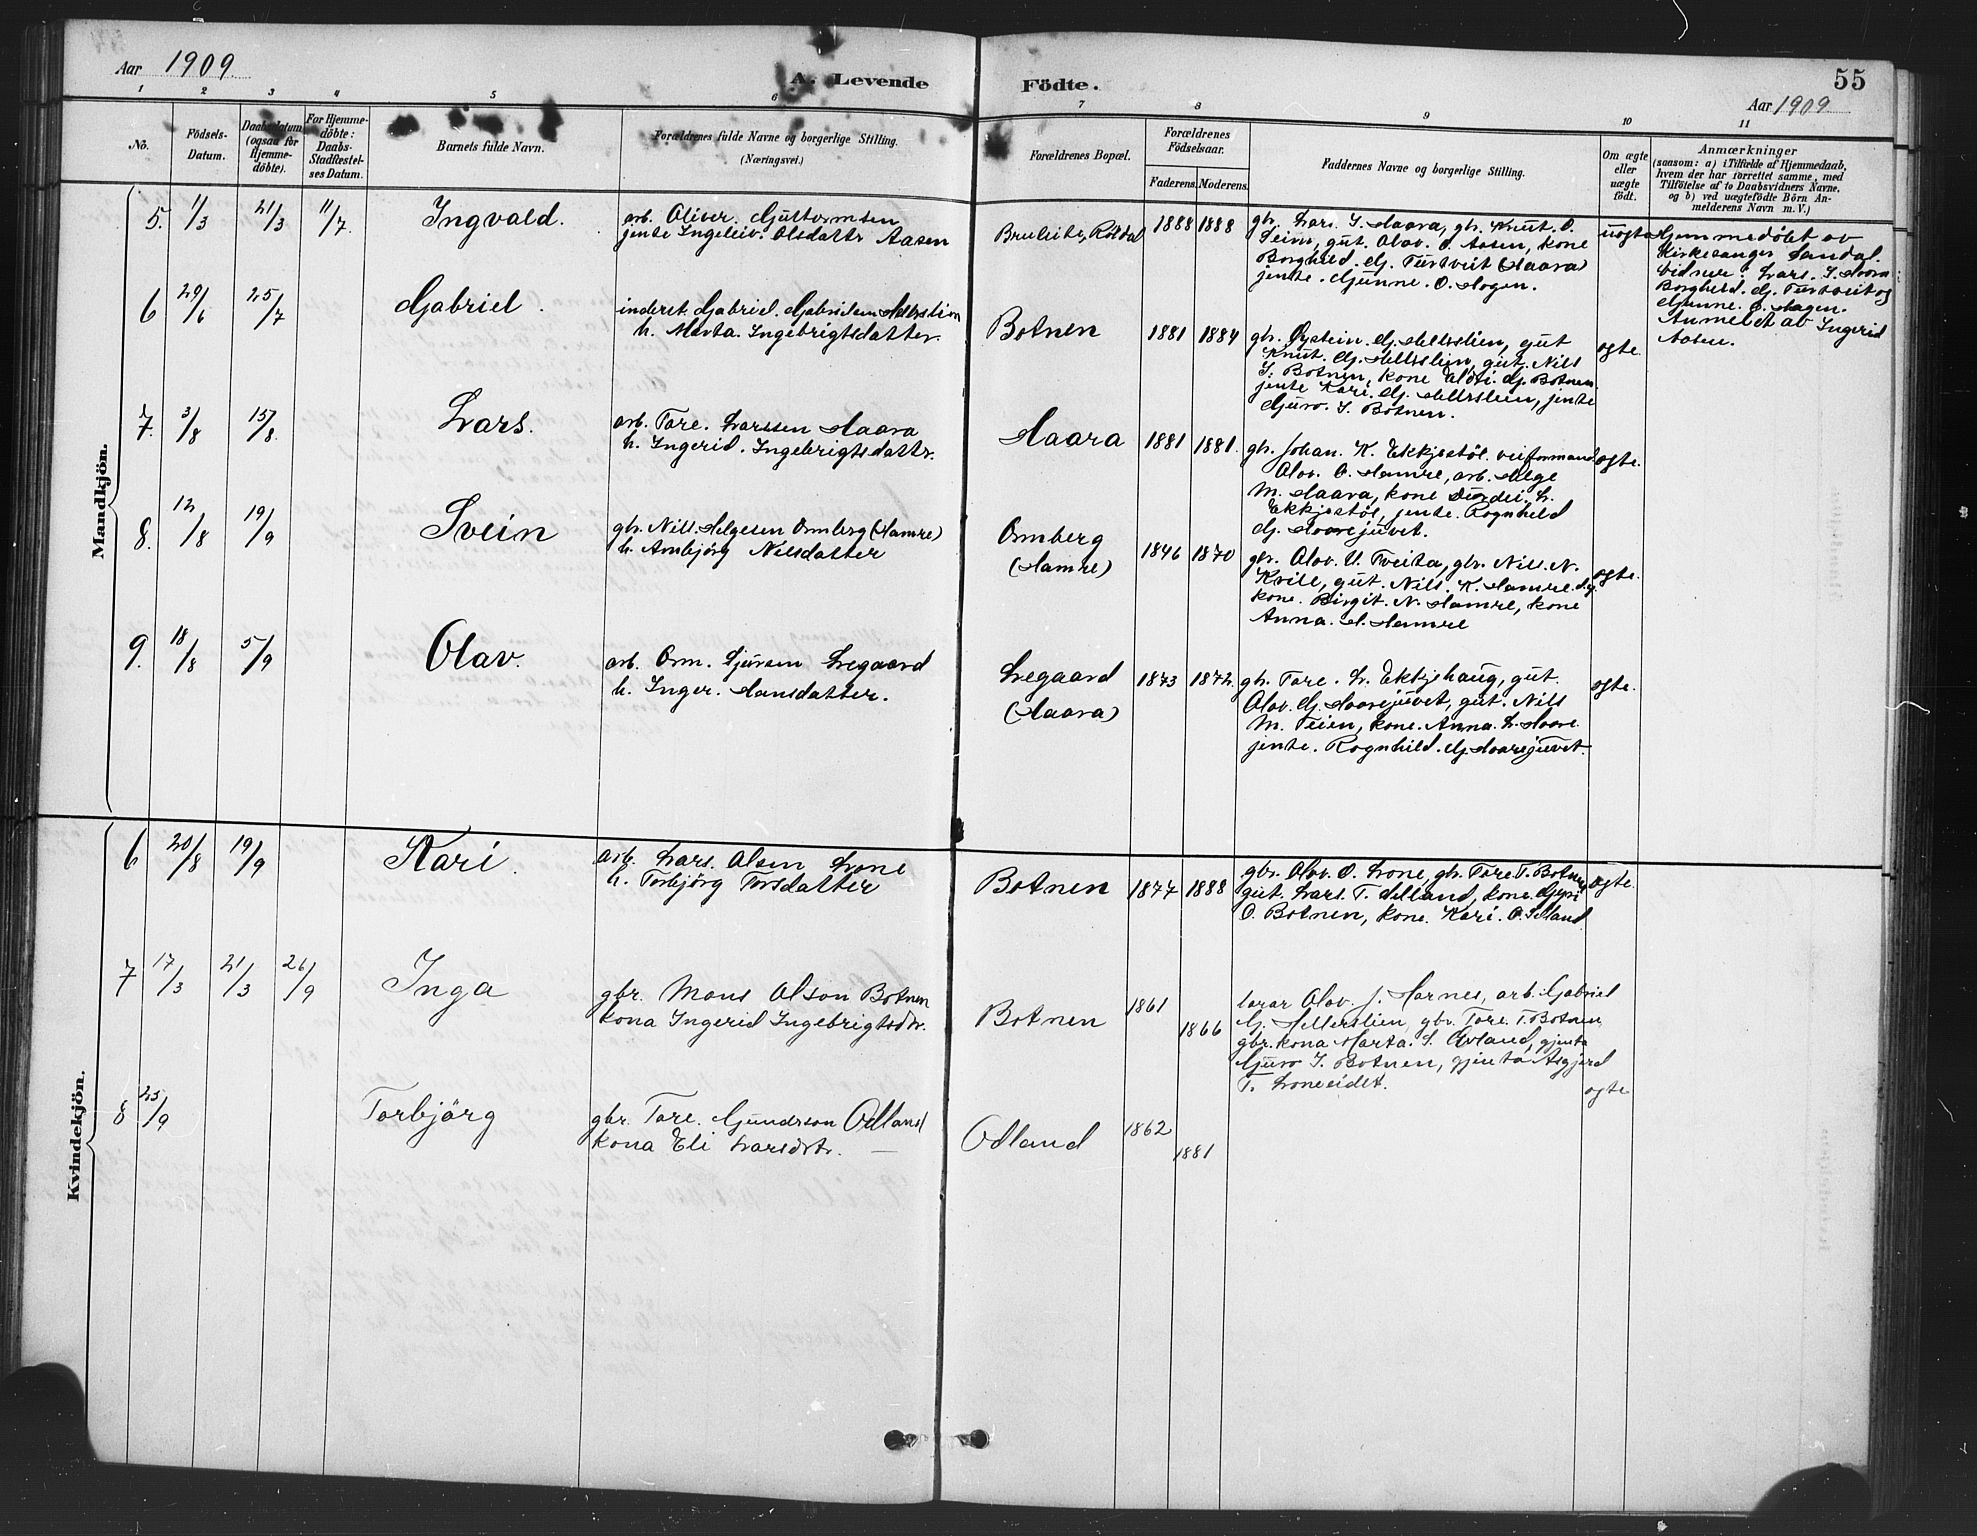 Aar 1909.
A. Levende
Födte.
55
Aar 1909.
1 2 3 4 5 6 7 8 9 10 11
No.
Födsels-
Datum.
Daabsdatum
(ogsaa for
Hjemme-
döbte).
For Hjemme-
döbte:
Daabs-
Stadfæstel-
ses Datum.
Barnets fulde Navn.
Forældrenes fulde Navne og borgerlige Stilling.
(Næringsvei.)
Forældrenes Bopæl.
Forældrenes
Födselsaar.
Faderens. Moderens.
Faddernes Navne og borgerlige Stilling.
Om ægte
eller
uægte
födt.
Anmærkninger
(saasom: a) i Tilfælde af Hjemmedaab,
hvem der har forrettet samme, med
Tilföielse af to Daabsvidners Navne,
og b) ved uægtefödte Börn An-
melderens Navn m. V.)
Mandkjön.
5. 1/3 21/3 11/7. Ingvald.
arb. Oliver. Guttormsen
jente Ingeleiv. Olsdattr Aasen
Bruleite, Röldal 1888 1888
gbr. Lars. S. Haara, gbr. Knut. O.
Seim, gut. Olav. O. Aasen, kone
Borghild. Gj. Turtveit (Haara)
jente. Gunne. O. Hagen.
uögta
Hjemmedöbt av
Kirkesanger Sandal.
Vidner: Lars. S. Haara
Borghild. Gj. Turtveit og
Gunne. O. Hagen.
Anmeldt av Ingerid
Aasen.
6 29/6 25/7 Gabriel.
inderst. Gabriel. Gabrielsen Hellerslien
h. Marta. Ingebrigtsdatter.
Botnen 1881 1884
gbr. Öystein. Gj. Hellerslien, gut
Knut. Gj. Hellerslien, gut. Nils
S. Botnen, kone Eldri. Gj. Botnen
jente Kari. Gj. Hellerslien, jente
Guro. S. Botnen.
ogte.
7. 3/8 15/8. Lars.
arb. Tore. Larssen Haara
h. Ingerid. Ingebrigtsdattr.
Haara 1881 1881.
gbr. Johan. K. Ekkjestöl. veiformand
Olav. O. Hamre, arb. Helge
M. Haara, kone Durdei. L.
Ekkjestöl, jente. Ragnhild
Gj. Haarejuvet.
ogte.
8. 12/8 19/9 Svein
gbr. Nils. Helgesen Ormberg (Hamre)
h. Ambjörg Nilsdatter
Ormberg
(Hamre)
1846 1870
gbr. Olav. U. Tveita, gbr. Nils. N.
Kvill, gut. Nils. K. Hamre. d.y.
kone. Birgit. N. Hamre, kone
Anna. H. Hamre
ogte.
9. 18/8 5/9 Olav.
arb. Orm. Sjursen Legaard
h. Inger. Hansdatter.
Legaard
(Haara)
1873 1872.
gbr. Tore. L. Ekkjehaug, gut.
Olav. Gj. Haarejuvet, gut. Nils
M. Teien, kone. Anna. L. Haare.
jente. Ragnhild. Gj. Haarejuvet.
ogte.
Kvindekjön.
6 20/8 19/9 Kari.
arb. Lars. Olsen Lone
h. Torbjörg Torsdatter
Botnen 1877 1888
gbr. Olav. O. Lone, gbr. Tore T. Botnen
gut. Lars. T. Helland, kone. Gyri
O. Botnen, kone. Kari. O. Helland
ogte.
7 17/3 21/3 26/9 Inga
gbr. Mons Olson Botnen
kona Ingerid Ingebrigtsdtr.
Botnen 1861 1866
lærar Olav. J. Harnes, arb. Gabriel
G. Hellerslien, gbr. Tore. T. Botnen,
gbr. kona Marta. S. Övland, gjenta
Guro S. Botnen, gjenta Asgjerd
T. Loneeidet.
ogte
8 25/9 Torbjörg
gbr. Tore. Gundrson Ödland
kona Eli Larsdtr.
Ödland 1862 1881